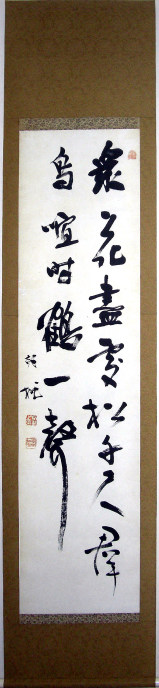 衆花盡處松千尺羣
鳥喧時鶴一聲